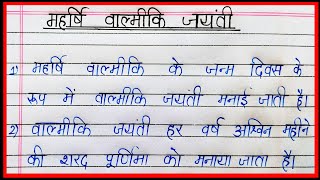 महर्षि वाल्मीकि जयंती
1) महर्षि वाल्मीकि के जन्म दिवस के
रूप में वाल्मीकि जयंती मनाई जाती है।
2) वाल्मीकि जयंती हर वर्ष अश्विन महीने
की शरद पूर्णिमा को मनाया जाता है।